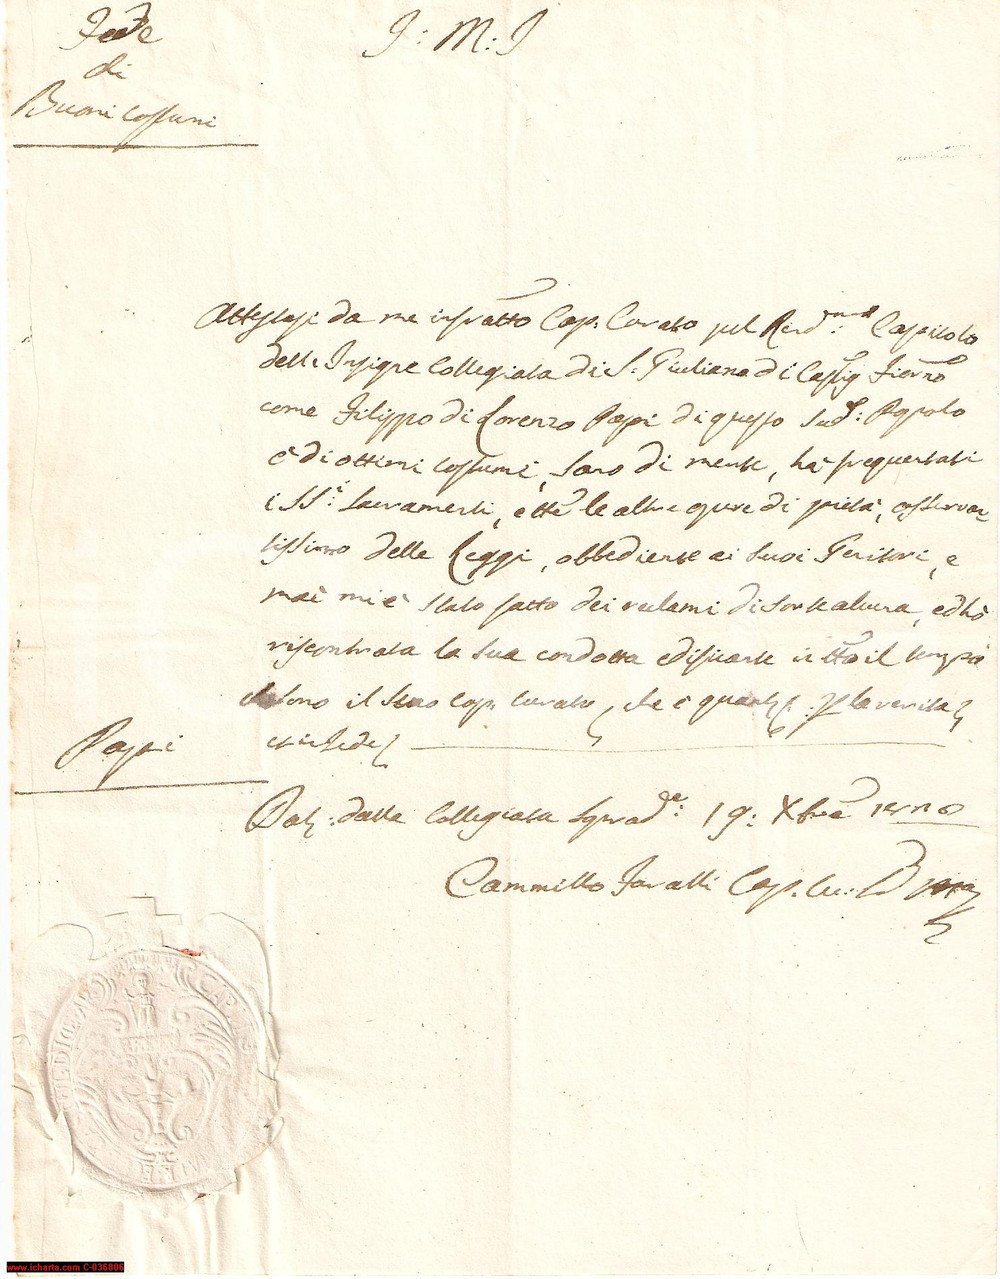 Fede
di
Buoni Costumi
J: M: J
Attestasi da me infratto Cap. Curato pel Revd.mo: Capitolo
della Insigne Collegiata di S. Giuliano di Castig Fiorno
come Filippo di Lorenzo Pappi di questo Sudo: Popolo
è di ottimi costumi, sano di mente, ha frequentati
i SS.i Sacramenti, e tte le altre opere di pietà, osservan-
tissimo delle Leggi, obbediente ai Suoi Genitori, e
mai mi è stato fatto dei reclami di sorte alcuna, ed hò
riscontrata la sua condotta edificante in tto il tempo
sono il suo Cap. Curato, che è quanto p. la verità
Pappi
in fede
Dat: dalla Collegiata Sprad.e: 19: Xbre
Cammillo Cap. Cu:
www.icharta.com C-036806